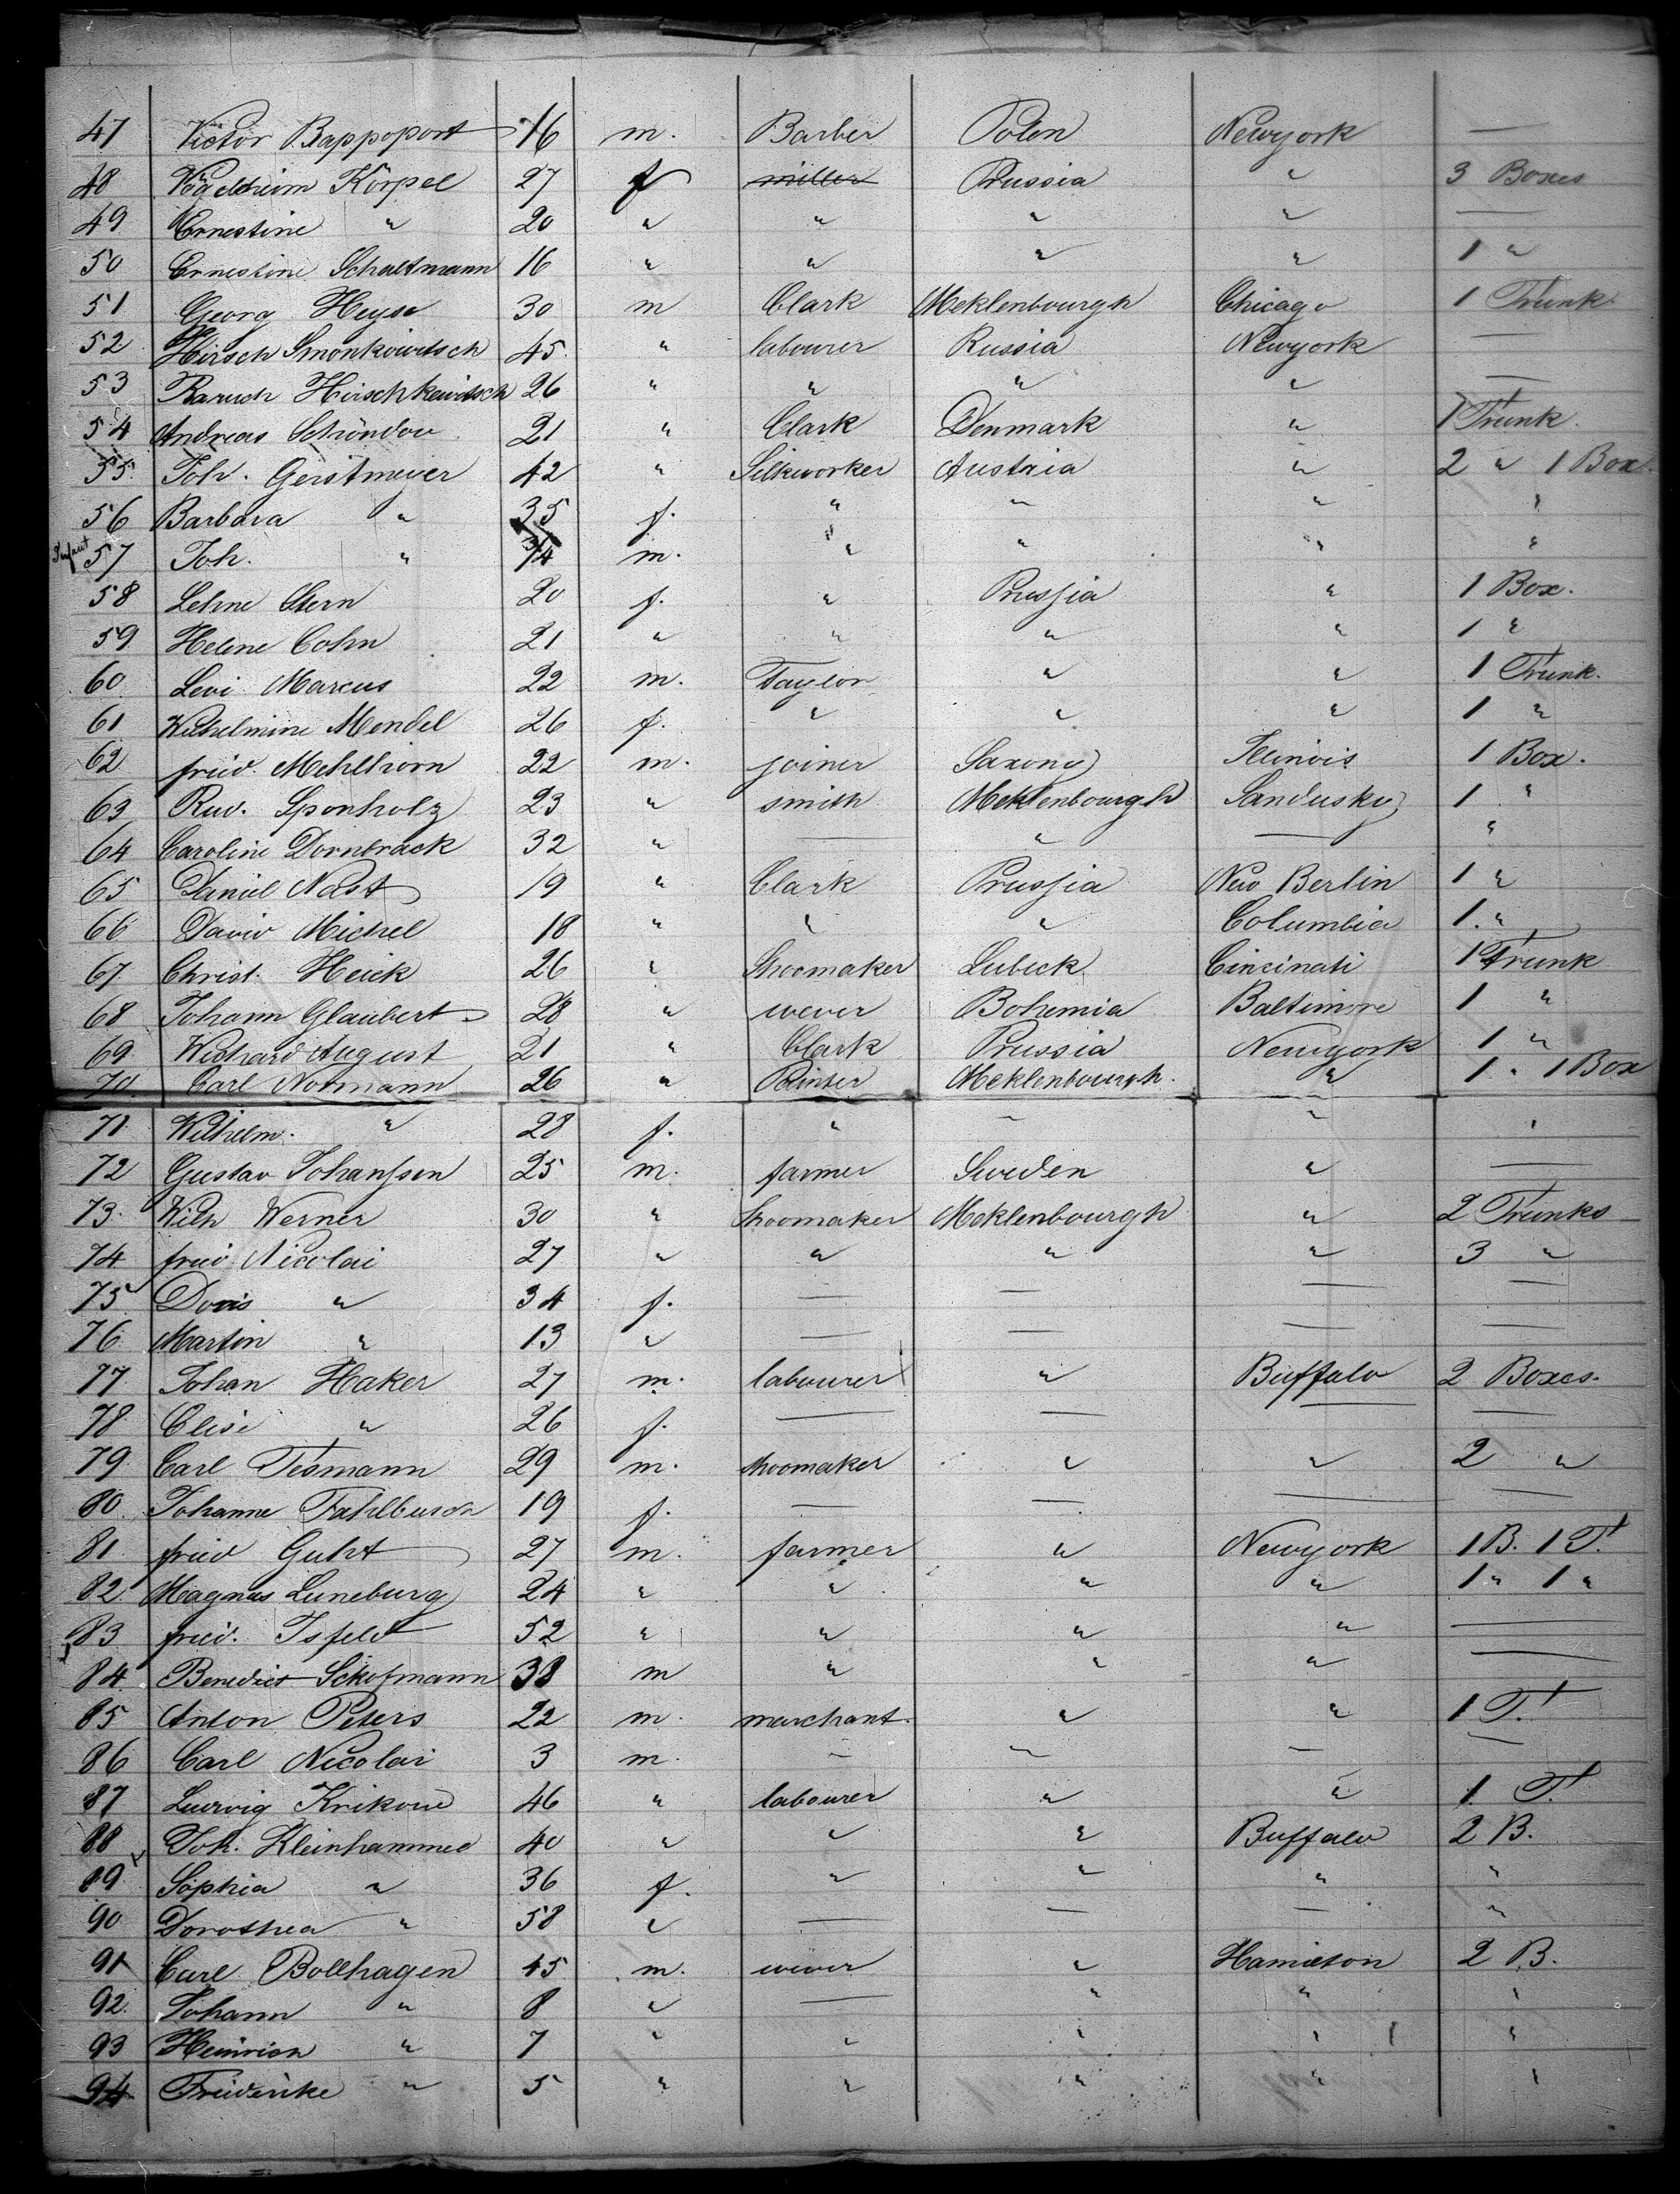 47 Victor Rappoport 16 m. Barber Polen Newyork —
48 Körpel 27 f miller Prussia " 3 Boxes
49 Ernestine " 20 " " " " —
50 Ernestine Schaltmann 16 " " " " 1 "
51 Georg Heyse 30 m Clark Meklenbourgh Chicago 1 Trunk
52 Hirsch Smonkowitsch 45 " labourer Russia Newyork —
53 Baruch Hirschkewitsch 26 " " " " —
54 Andreas Schöndou 21 " Clark Denmark " 1 Trunk.
55 Joh. Gerstmeyer 42 " Silkworker Austria " 2 " 1 Box.
56 Barbara " 35 f. " " " "
Infant 57 Joh. " 3/4 m. " " " "
58 Lehne Stern 20 f. " Prussia " 1 Box.
59 Helene Cohn 21 " " " " 1 "
60 Levi Marcus 22 m. Taylor " " 1 Trunk.
61 Wilhelmine Mendel 26 f. " " " 1 "
62 fried. Mehlhorn 22 m. joiner Saxony Illinois 1 Box.
63 Rud. Sponholz 23 " smith Meklenbourgh Sandusky 1 "
64 Caroline Dornbrack 32 " — " — "
65 Daniel Nast 19 " Clark Prussia New Berlin 1 "
66 David Michel 18 " " " Columbia 1 "
67 Christ. Heick 26 " Shoomaker Lubeck Cincinati 1 Trunk
68 Johann Glaubert 28 " wever Bohemia Baltimore 1 "
69 Wichard August 21 " Clark Prussia Newyork 1 "
70 Carl Normann 26 " Painter Meklenbourgh. " 1 " 1 Box
71 Wilhelm. " 28 f. " " " "
72 Gustav Johanssen 25 m. farmer Sweden " —
73 Wilh Werner 30 " Shoomaker Meklenbourgh " 2 Trunks
74 fried Nicolai 27 " " " " 3 "
75 Doris " 34 f. — — — —
76 Martin " 13 " — — — —
77 Johan Haker 27 m. labourer " Buffalo 2 Boxes.
78 Elise " 26 f. — — — —
79 Carl Tesmann 29 m. shoomaker " " 2 "
80 Johanne Fahlbusch 19 f. — — — —
81 fried Guht 27 m. farmer " Newyork 1 B. 1 T.
82 Magnus Luneburg 24 " " " " 1 " 1 "
83 fried. Isfeld 52 " " " " —
84 Benedict Schofmann 38 m " " " —
85 Anton Peters 22 m. marchant. " " 1 T.
86 Carl Nicolai 3 m. — — — —
87 Ludwig Krikow 46 " labourer " " 1. T.
88 Joh. Kleinhammer 40 " " " Buffalo 2 B.
89 Sophia " 36 f. " " " "
90 Dorothea " 58 " — — — "
91 Carl Bollhagen 45 m. wever " Hamilton 2 B.
92 Johann " 8 " — " " "
93 Heinrich " 7 " " " " "
94 Friederike " 5 " " " " "